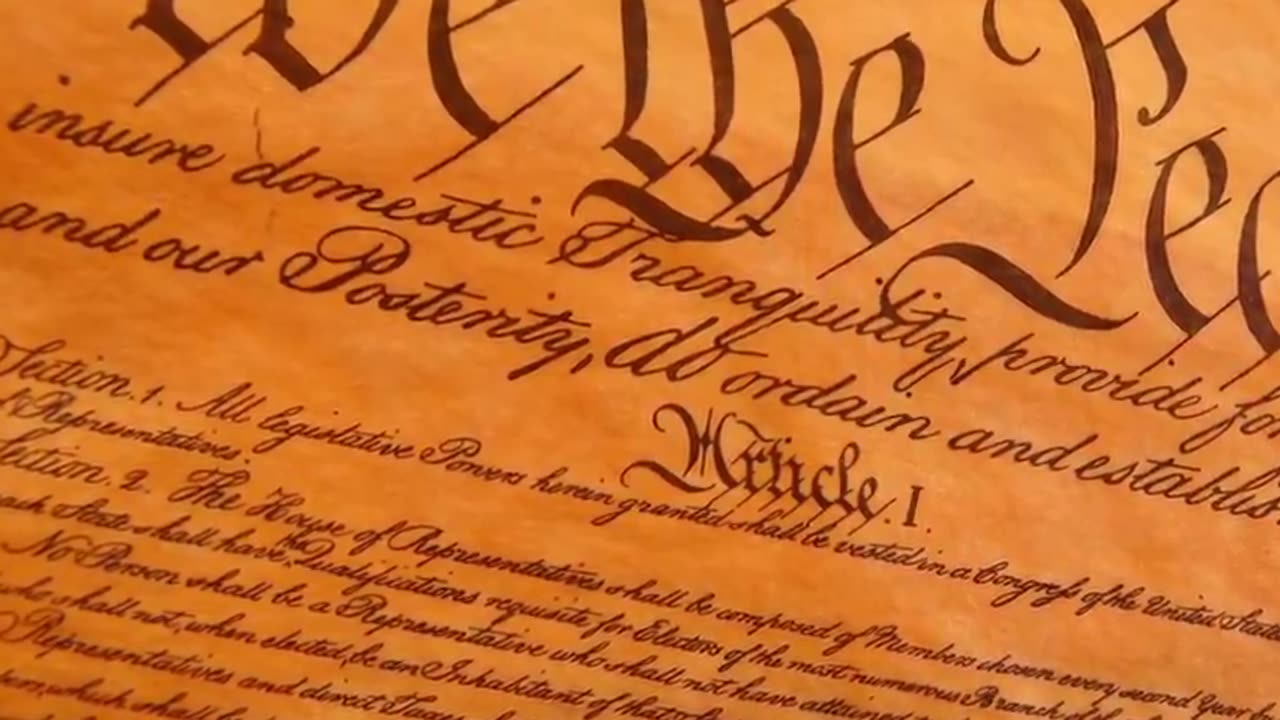 We the Peo
insure domestic Tranquility, provide for
and our Posterity, do ordain and establis
Article. I.
Section. 1. All legislative Powers herein granted shall be vested in a Congress of the United States
of Representatives.
Section. 2. The House of Representatives shall be composed of Members chosen every second Year b
each State shall have the Qualifications requisite for Electors of the most numerous Branch of the
No Person shall be a Representative who shall not have attained
who shall not, when elected, be an Inhabitant of that
Representatives and direct Taxes
which shall